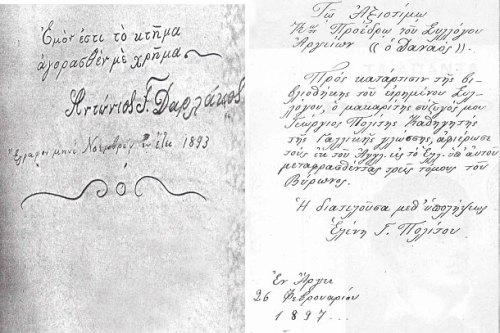 Ἐμόν ἐστι τὸ κτῆμα
ἀγορασθὲν μὲ χρῆμα
Ἀντώνιος Γ. Δαρλάκος
Νοεμβρίῳ ἔτει 1893
Τῷ Ἀξιοτίμῳ
Κῳ Προέδρῳ τοῦ Συλλόγου
Ἀργείων ((ὁ Δαναὸς)).
Πρὸς κατάρτισιν τῆς βι-
βλιοθήκης τοῦ εἰρημένου Συλ-
λόγου, ὁ μακαρίτης σύζυγός μου
Γεώργιος Πολίτης Καθηγητὴς
τῆς Γαλλικῆς γλώσσης, ἀφιέρωσε
τοὺς ἐκ τοῦ Ἀγγλ. εἰς τὸ Ἑλλ. ὑπ' αὐτοῦ
μεταφρασθέντας τρεῖς τόμους τοῦ
Βύρωνος.
Ἡ διατελοῦσα μεθ' ὑπολήψεως
Ἑλένη Γ. Πολίτου
Ἐν Ἄργει
26 Φεβρουαρίου
1897...